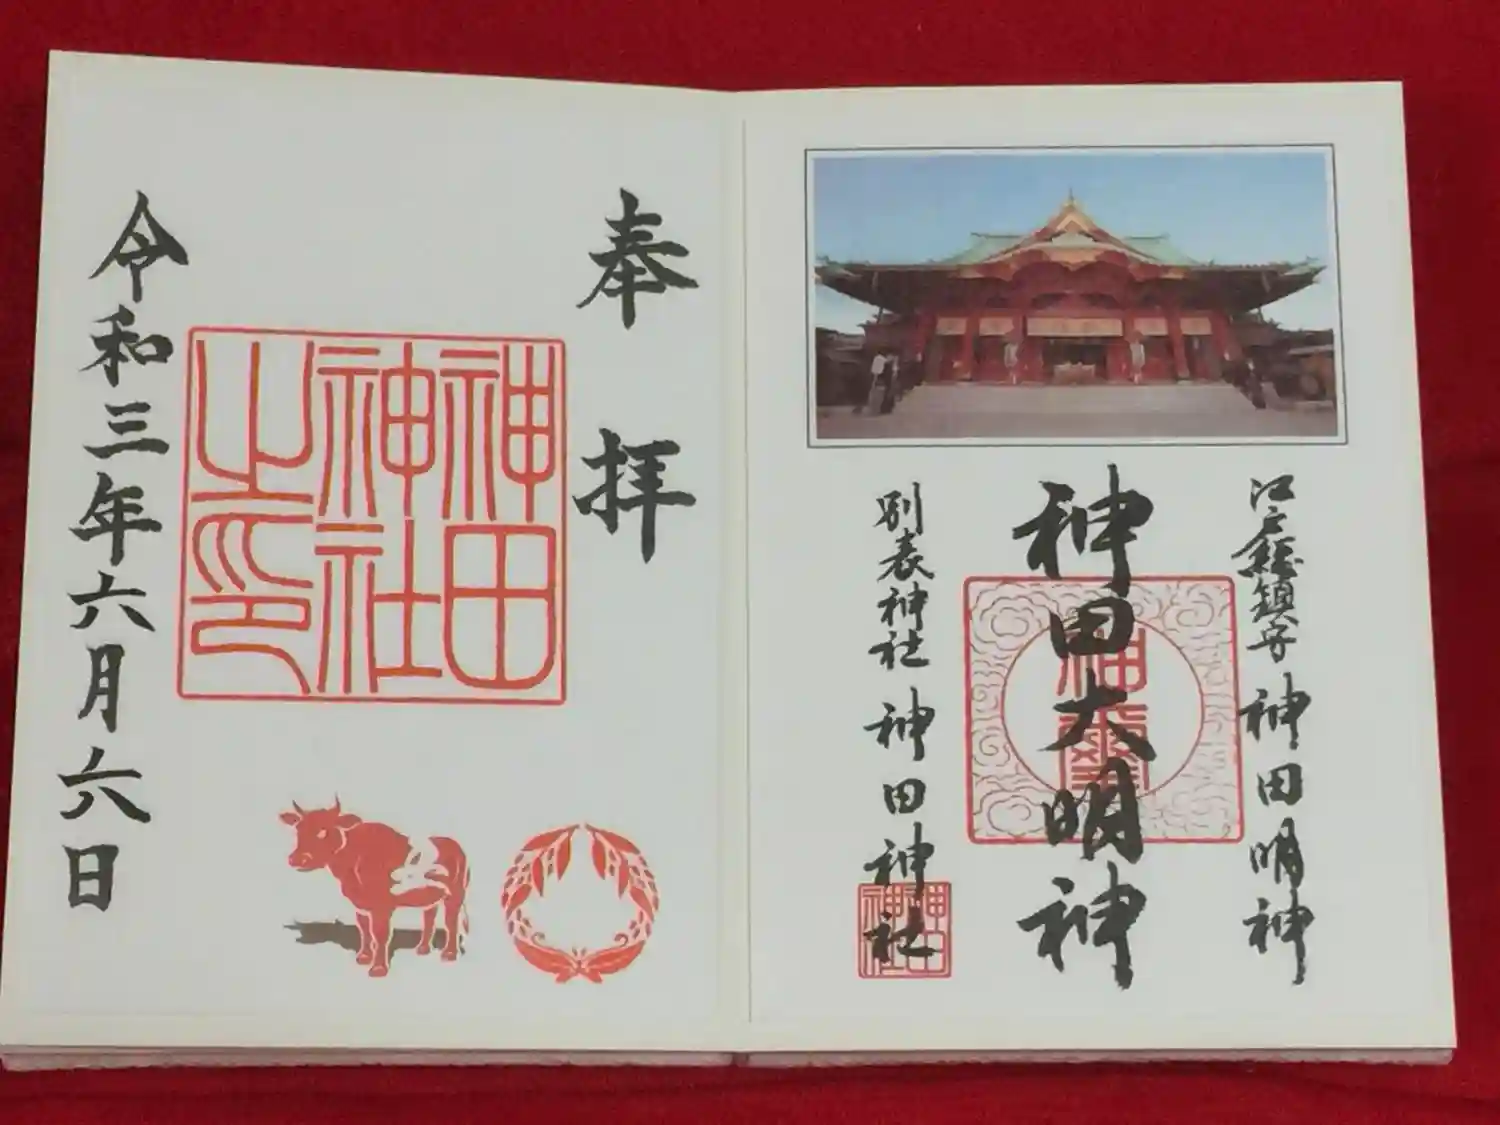 江戸總鎮守 神田明神
神田大明神
神霊
別表神社 神田神社
神田神社
奉拝
神田神社之印
令和三年六月六日